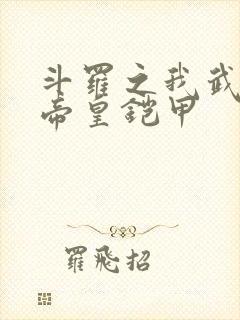 斗羅之我武
帝皇铠甲
羅飛招